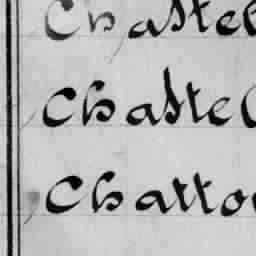 Chastel
Chastel
Chatto